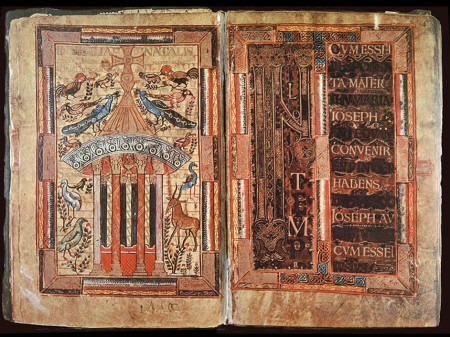 NATALIS
IN
T
E
M
CVM ESSET
TA MATER
MARIA
IOSEPH
CONVENIR
HABENS
IOSEPH AV
CVM ESSET